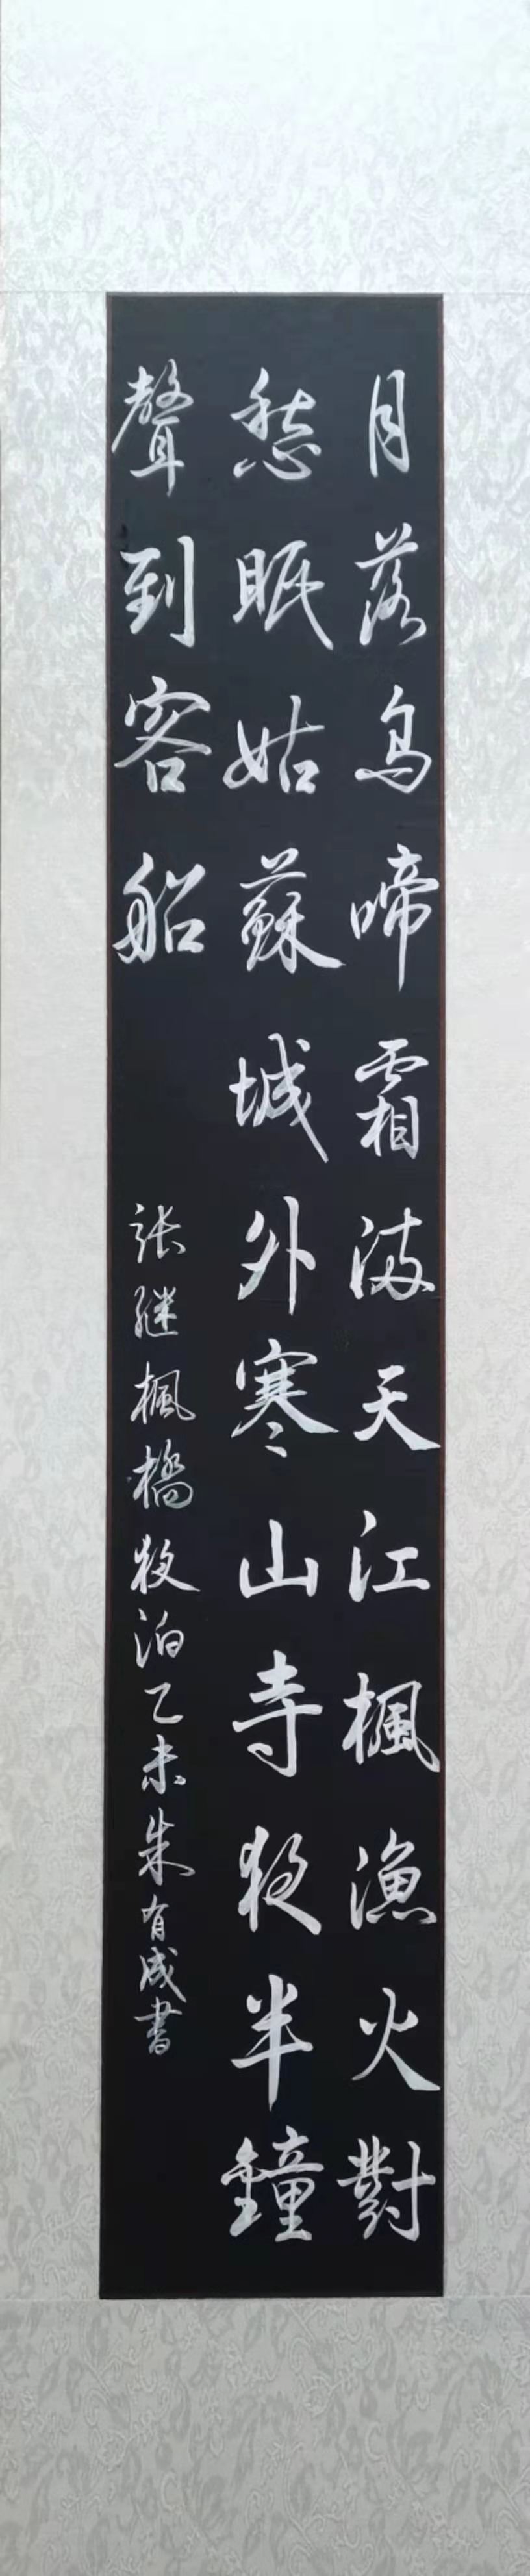 月落烏啼霜满天江楓漁火對
愁眠姑蘇城外寒山寺夜半鐘
聲到客船
张继楓橋夜泊乙未朱有成書